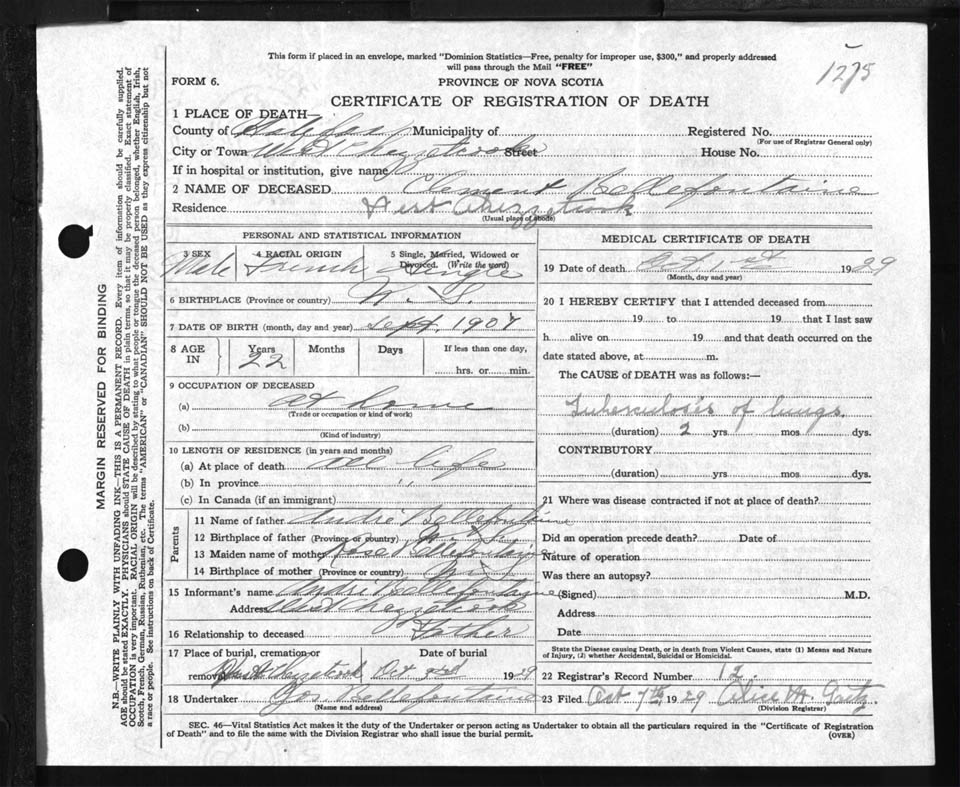 This form if placed in an envelope, marked "Dominion Statistics—Free, penalty for improper use, $300," and properly addressed
will pass through the Mail "FREE"
1275
FORM 6.
PROVINCE OF NOVA SCOTIA
CERTIFICATE OF REGISTRATION OF DEATH
1 PLACE OF DEATH—
County of Halifax Municipality of Registered No.
(For use of Registrar General only)
City or Town West Chezzetcook Street House No.
If in hospital or institution, give name
2 NAME OF DECEASED Clement Bellefontaine
Residence West Chezzetcook
(Usual place of abode)
PERSONAL AND STATISTICAL INFORMATION
3 SEX 4 RACIAL ORIGIN 5 Single, Married, Widowed or
Divorced. (Write the word)
Male French Single
6 BIRTHPLACE (Province or country) N. S.
7 DATE OF BIRTH (month, day and year) Sept. 1907
8 AGE IN Years Months Days If less than one day,
22 hrs. or min.
9 OCCUPATION OF DECEASED
(a) At home
(Trade or occupation or kind of work)
(b)
(Kind of industry)
10 LENGTH OF RESIDENCE (in years and months)
(a) At place of death all life
(b) In province " "
(c) In Canada (if an immigrant)
Parents
11 Name of father André Bellefontaine
12 Birthplace of father (Province or country) N. S.
13 Maiden name of mother Rose Bellefontaine
14 Birthplace of mother (Province or country) N. S.
15 Informant's name André Bellefontayne
Address West Chezzetcook
16 Relationship to deceased Father
17 Place of burial, cremation or Date of burial
removal West Chezzetcook Oct 3rd 1929
18 Undertaker Jos. Bellefontaine
(Name and address)
MEDICAL CERTIFICATE OF DEATH
19 Date of death Oct 1st 1929
(Month, day and year)
20 I HEREBY CERTIFY that I attended deceased from
19 to 19 that I last saw
h alive on 19 and that death occurred on the
date stated above, at m.
The CAUSE of DEATH was as follows:—
Tuberculosis of lungs.
(duration) 2 yrs. mos. dys.
CONTRIBUTORY
(duration) yrs. mos. dys.
21 Where was disease contracted if not at place of death?
Did an operation precede death? Date of
Nature of operation
Was there an autopsy?
(Signed) M.D.
Address
Date
State the Disease causing Death, or in death from Violent Causes, state (1) Means and Nature
of Injury, (2) whether Accidental, Suicidal or Homicidal.
22 Registrar's Record Number 12
23 Filed Oct 7th 1929 Alice H. Gaetz
(Division Registrar)
SEC. 46—Vital Statistics Act makes it the duty of the Undertaker or person acting as Undertaker to obtain all the particulars required in the "Certificate of Registration
of Death" and to file the same with the Division Registrar who shall issue the burial permit. (OVER)
MARGIN RESERVED FOR BINDING
N.B.—WRITE PLAINLY WITH UNFADING INK—THIS IS A PERMANENT RECORD. Every item of information should be carefully supplied.
AGE should be stated EXACTLY. PHYSICIANS should STATE CAUSE OF DEATH in plain terms, so that it may be properly classified. Exact statement of
OCCUPATION is very important. RACIAL ORIGIN will be described by stating to what people or tongue the deceased person belonged, whether English, Irish,
Scotch, French, German, Russian, Ruthenian, etc. The terms "AMERICAN" or "CANADIAN" SHOULD NOT BE USED as they express citizenship but not
a race or people. See instructions on back of Certificate.